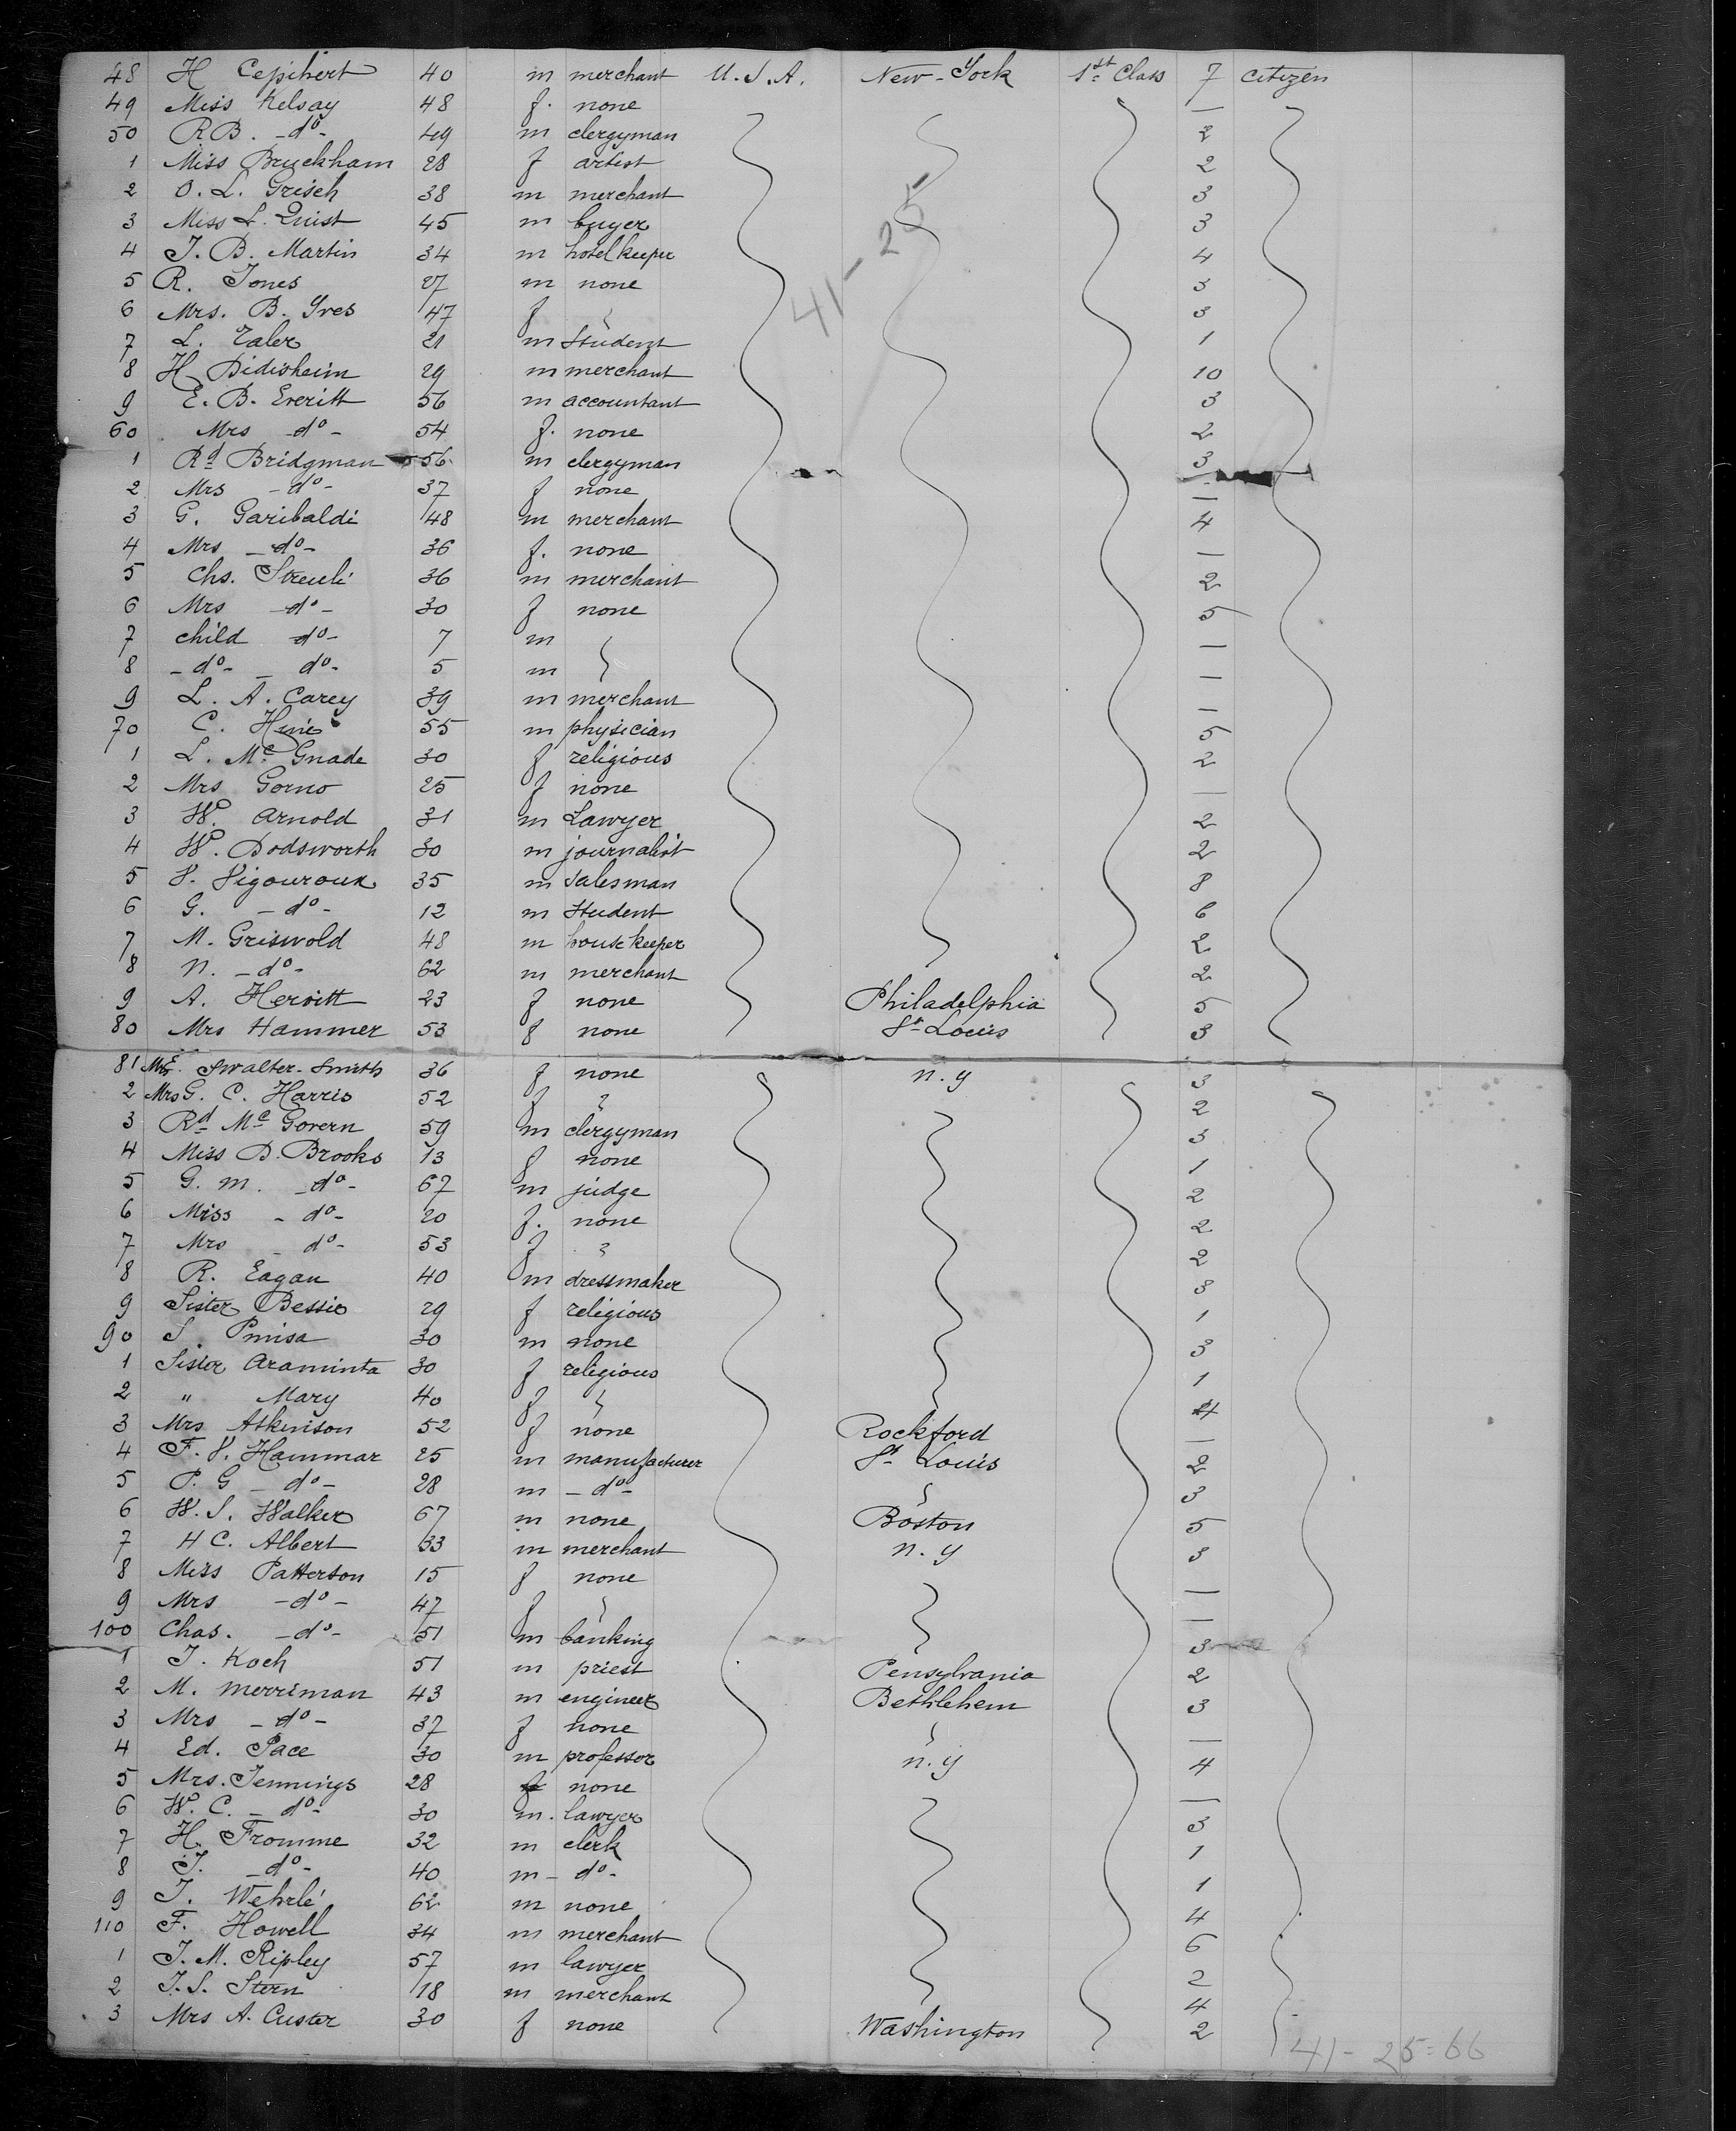 48 H Cepihert 40 m merchant U.S.A. New-York 1st Class 7 citizen
49 Miss Kelsay 48 f. none —
50 R B. -do- 49 m clergyman 2
1 Miss Bruckham 28 f artist 2
2 O. L. Grisch 38 m merchant 3
3 Miss L. Quist 45 m buyer 3
4 J. B. Martin 34 m hotel keeper 4
5 R. Jones 27 m none 3
6 Mrs. B. Yves 47 f 3
7 L. Zaler 21 m Student 1
8 H. Didisheim 29 m merchant 10
9 E. B. Everitt 56 m accountant 3
60 Mrs -do- 54 f. none 2
1 Rd Bridgman 56 m clergyman 3
2 Mrs -do- 37 f none —
3 G. Garibaldi 48 m merchant 4
4 Mrs -do- 36 f. none —
5 Chs. Streuli 36 m merchant 2
6 Mrs -do- 30 f none 5
7 child do- 7 m —
8 -do- - do- 5 m —
9 L. A. Carey 39 m merchant —
70 C. Hine 55 m physician 5
1 L. Mc Gnade 30 f religious 2
2 Mrs Gorno 25 f none —
3 W. Arnold 31 m Lawyer 2
4 W. Dodsworth 30 m journalist 2
5 V. Vigouroux 35 m Salesman 8
6 G. -do- 12 m Student 6
7 M. Griswold 48 m housekeeper 2
8 N. -do- 62 m merchant 2
9 A. Hervitt 23 f none Philadelphia 5
80 Mrs Hammer 53 f none St Louis 3
81 Mrs E. Swalter-Smith 36 f none n.y 3
2 Mrs G. C. Harris 52 f 2
3 Rd Mc Govern 59 m clergyman 3
4 Miss D. Brooks 13 f none 1
5 G. M. -do- 67 m judge 2
6 Miss - do- 20 f. none 2
7 Mrs - do- 53 f 2
8 R. Eagan 40 m dressmaker 3
9 Sister Bessie 29 f religious 1
90 S. Pmisa 30 m none 3
1 Sister Araminta 30 f religious 1
2 " Mary 40 f 4
3 Mrs Atkinson 52 f none Rockford —
4 F. V. Hammar 25 m manufacturer St Louis 2
5 P. G - do- 28 m -do- 3
6 W. S. Walker 67 m none Boston 5
7 H C. Albert 33 m merchant n.y 3
8 Miss Patterson 15 f none —
9 Mrs -do- 47 f —
100 Chas. -do- 51 m banking 3
1 J. Koch 51 m priest Pensylvania 2
2 M. Merriman 43 m engineer Bethlehem 3
3 Mrs -do- 37 f none —
4 Ed. Pace 30 m professor n.y 4
5 Mrs. Jennings 28 f none —
6 W. C. - do- 30 m. lawyer 3
7 H. Fromme 32 m clerk 1
8 J. -do- 40 m - do- 1
9 J. Wehrlé 62 m none 4
110 F. Howell 34 m merchant 6
1 J. M. Ripley 57 m lawyer 2
2 J. S. Stern 18 m merchant 4
3 Mrs A. Custer 30 f none Washington 2
41-25
41-25=66